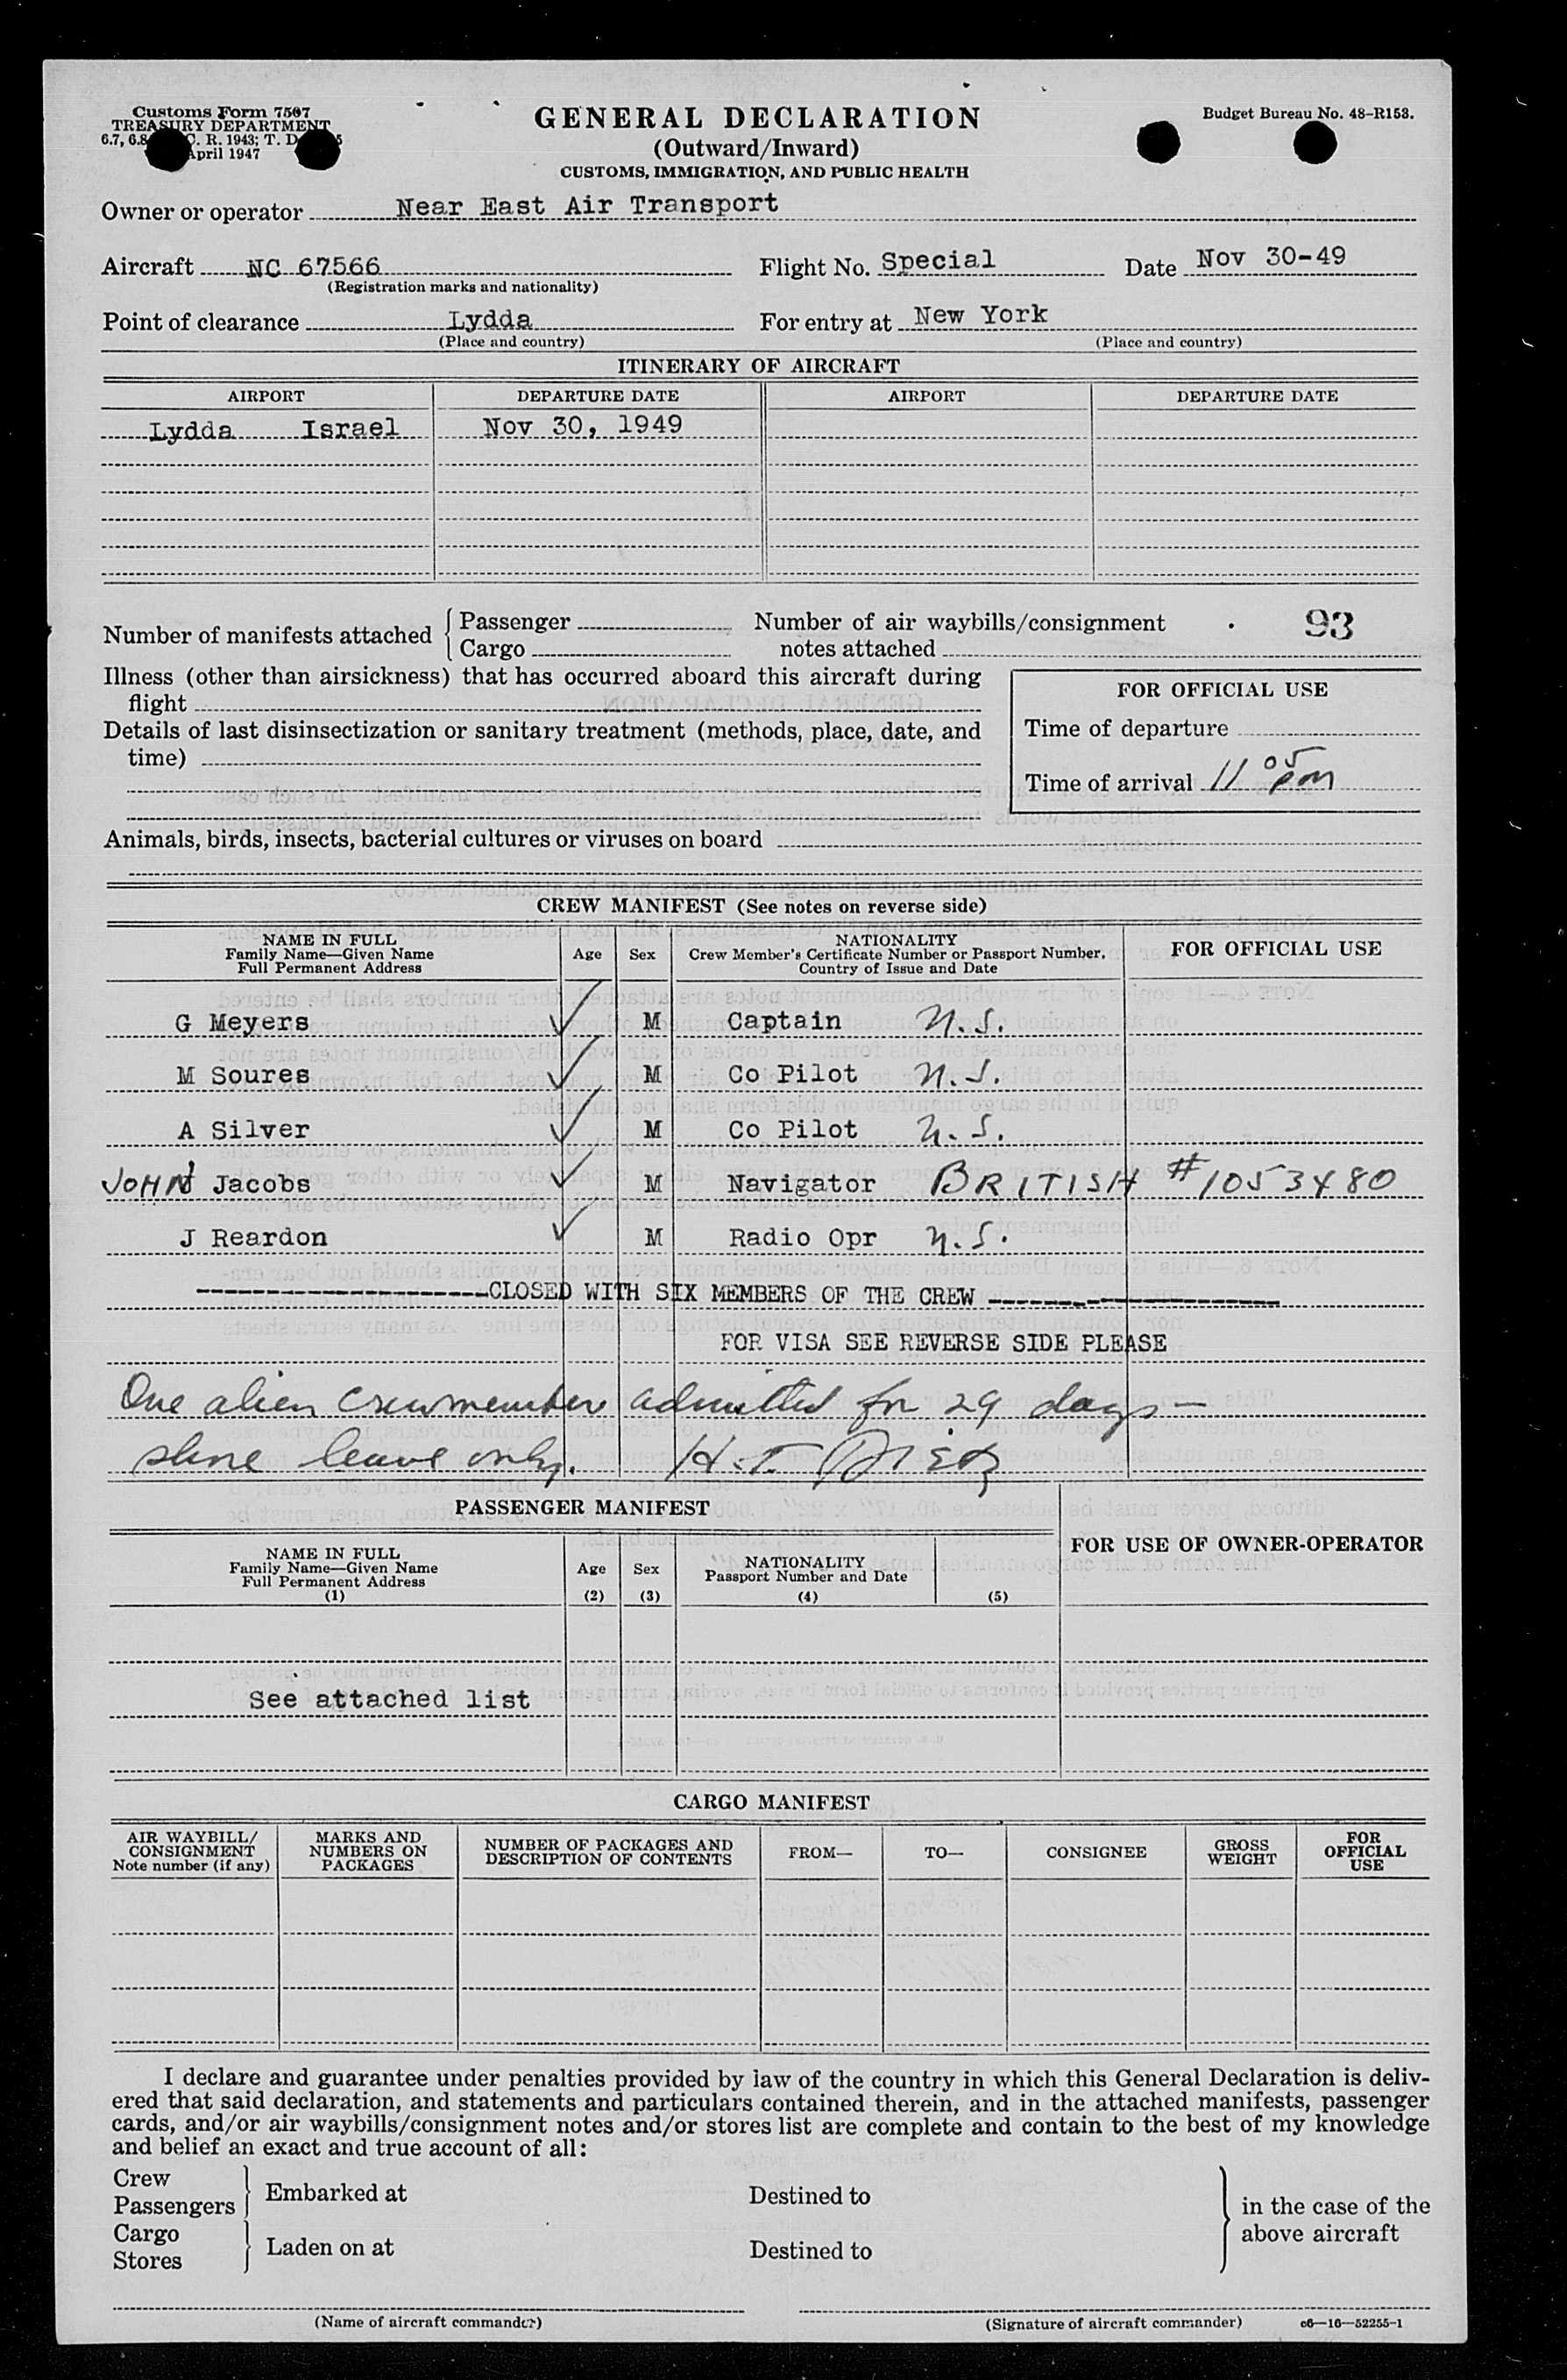 Customs Form 7507
TREASURY DEPARTMENT
6.7, 6.8 C. R. 1943; T. D. 5
April 1947
GENERAL DECLARATION
(Outward/Inward)
CUSTOMS, IMMIGRATION, AND PUBLIC HEALTH
Budget Bureau No. 48-R153.
Owner or operator Near East Air Transport
Aircraft NC 67566 Flight No. Special Date Nov 30-49
(Registration marks and nationality)
Point of clearance Lydda For entry at New York
(Place and country) (Place and country)
ITINERARY OF AIRCRAFT
AIRPORT DEPARTURE DATE AIRPORT DEPARTURE DATE
Lydda Israel Nov 30, 1949
Number of manifests attached { Passenger Number of air waybills/consignment 93
Cargo notes attached
Illness (other than airsickness) that has occurred aboard this aircraft during
flight
Details of last disinsectization or sanitary treatment (methods, place, date, and
time)
FOR OFFICIAL USE
Time of departure
Time of arrival 11 05 pm
Animals, birds, insects, bacterial cultures or viruses on board
CREW MANIFEST (See notes on reverse side)
NAME IN FULL
Family Name—Given Name
Full Permanent Address
Age
Sex
NATIONALITY
Crew Member's Certificate Number or Passport Number,
Country of Issue and Date
FOR OFFICIAL USE
G Meyers M Captain U.S.
M Soures M Co Pilot U.S.
A Silver M Co Pilot U.S.
JOHN Jacobs M Navigator BRITISH #1053480
J Reardon M Radio Opr U.S.
CLOSED WITH SIX MEMBERS OF THE CREW
FOR VISA SEE REVERSE SIDE PLEASE
One alien crewmember admitted for 29 days—
shore leave only. H.T.
PASSENGER MANIFEST
NAME IN FULL
Family Name—Given Name
Full Permanent Address
(1)
Age
(2)
Sex
(3)
NATIONALITY
Passport Number and Date
(4)
(5)
FOR USE OF OWNER-OPERATOR
See attached list
CARGO MANIFEST
AIR WAYBILL/
CONSIGNMENT
Note number (if any)
MARKS AND
NUMBERS ON
PACKAGES
NUMBER OF PACKAGES AND
DESCRIPTION OF CONTENTS
FROM—
TO—
CONSIGNEE
GROSS
WEIGHT
FOR
OFFICIAL
USE
I declare and guarantee under penalties provided by law of the country in which this General Declaration is deliv-
ered that said declaration, and statements and particulars contained therein, and in the attached manifests, passenger
cards, and/or air waybills/consignment notes and/or stores list are complete and contain to the best of my knowledge
and belief an exact and true account of all:
Crew
Passengers } Embarked at Destined to
Cargo
Stores } Laden on at Destined to
} in the case of the
above aircraft
(Name of aircraft commander) (Signature of aircraft commander) c6—16—52255-1